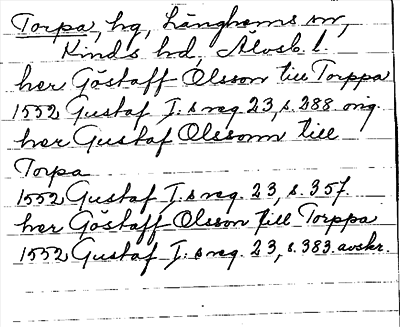 Torpa, hg, Länghems sn,
Kinds hd, Älvsb. l.
her Göstaff Olsson till Torppa
1552 Gustaf I:s reg. 23, s. 288. orig.
her Gustaf Olssonn till
Torpa
1552 Gustaf I.s reg. 23, s. 357.
her Göstaff Olsson till Torppa
1552 Gustaf I:s reg. 23, s. 383. avskr.